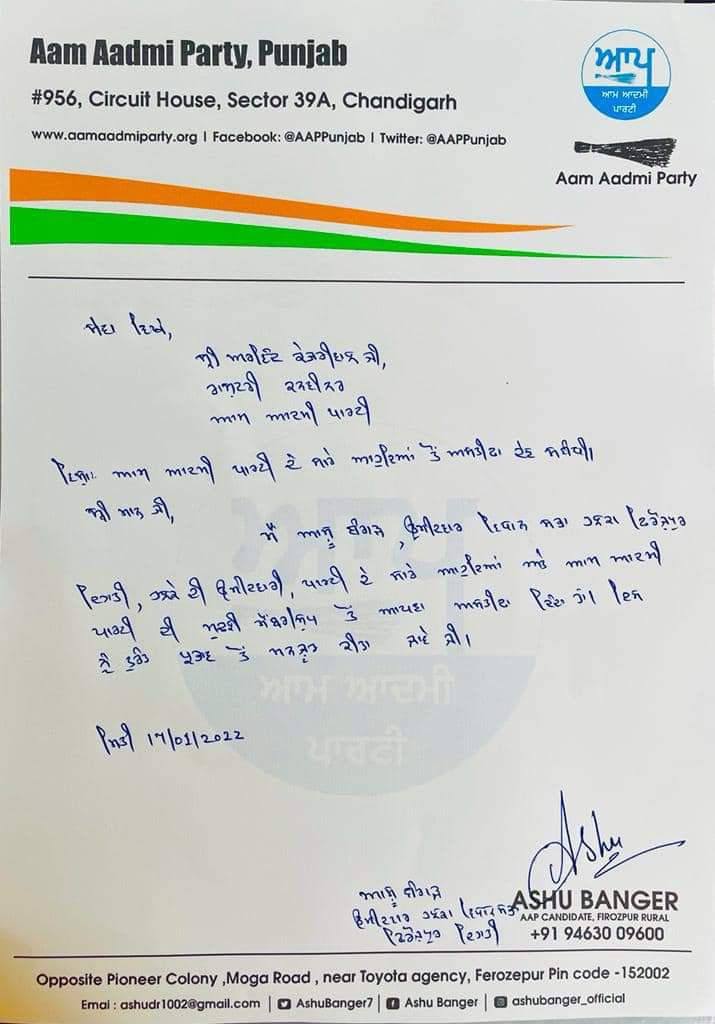 Aam Aadmi Party, Punjab
#956, Circuit House, Sector 39A, Chandigarh
www.aamaadmiparty.org | Facebook: @AAPPunjab | Twitter: @AAPPunjab
ਆਪ
ਆਮ ਆਦਮੀ
ਪਾਰਟੀ
Aam Aadmi Party
ਸੇਵਾ ਵਿਖੇ,
ਸ੍ਰੀ ਅਰਵਿੰਦ ਕੇਜਰੀਵਾਲ ਜੀ,
ਰਾਸ਼ਟਰੀ ਕਨਵੀਨਰ
ਆਮ ਆਦਮੀ ਪਾਰਟੀ
ਵਿਸ਼ਾ: ਆਮ ਆਦਮੀ ਪਾਰਟੀ ਦੇ ਸਾਰੇ ਅਹੁਦਿਆਂ ਤੋਂ ਅਸਤੀਫਾ ਦੇਣ ਸਬੰਧੀ।
ਸ੍ਰੀ ਮਾਨ ਜੀ,
ਮੈਂ ਆਸ਼ੂ ਬੰਗੜ, ਉਮੀਦਵਾਰ ਵਿਧਾਨ ਸਭਾ ਹਲਕਾ ਫਿਰੋਜ਼ਪੁਰ
ਦਿਹਾਤੀ, ਹਲਕੇ ਦੀ ਉਮੀਦਵਾਰੀ, ਪਾਰਟੀ ਦੇ ਸਾਰੇ ਅਹੁਦਿਆਂ ਅਤੇ ਆਮ ਆਦਮੀ
ਪਾਰਟੀ ਦੀ ਮੁਢਲੀ ਮੈਂਬਰਸ਼ਿਪ ਤੋਂ ਆਪਣਾ ਅਸਤੀਫਾ ਦਿੰਦਾ ਹਾਂ। ਇਸ
ਨੂੰ ਤੁਰੰਤ ਪ੍ਰਭਾਵ ਤੋਂ ਮਨਜ਼ੂਰ ਕੀਤਾ ਜਾਵੇ ਜੀ।
ਆਪ
ਆਮ ਆਦਮੀ
ਪਾਰਟੀ
ਮਿਤੀ 17/01/2022
Ashu
ਆਸ਼ੂ ਬੰਗੜ
ਉਮੀਦਵਾਰ ਹਲਕਾ ਵਿਧਾਨ ਸਭਾ
ਫਿਰੋਜ਼ਪੁਰ ਦਿਹਾਤੀ
ASHU BANGER
AAP CANDIDATE, FIROZPUR RURAL
+91 94630 09600
Opposite Pioneer Colony ,Moga Road , near Toyota agency, Ferozepur Pin code -152002
Emai : ashudr1002@gmail.com | AshuBanger7 | Ashu Banger | ashubanger_official